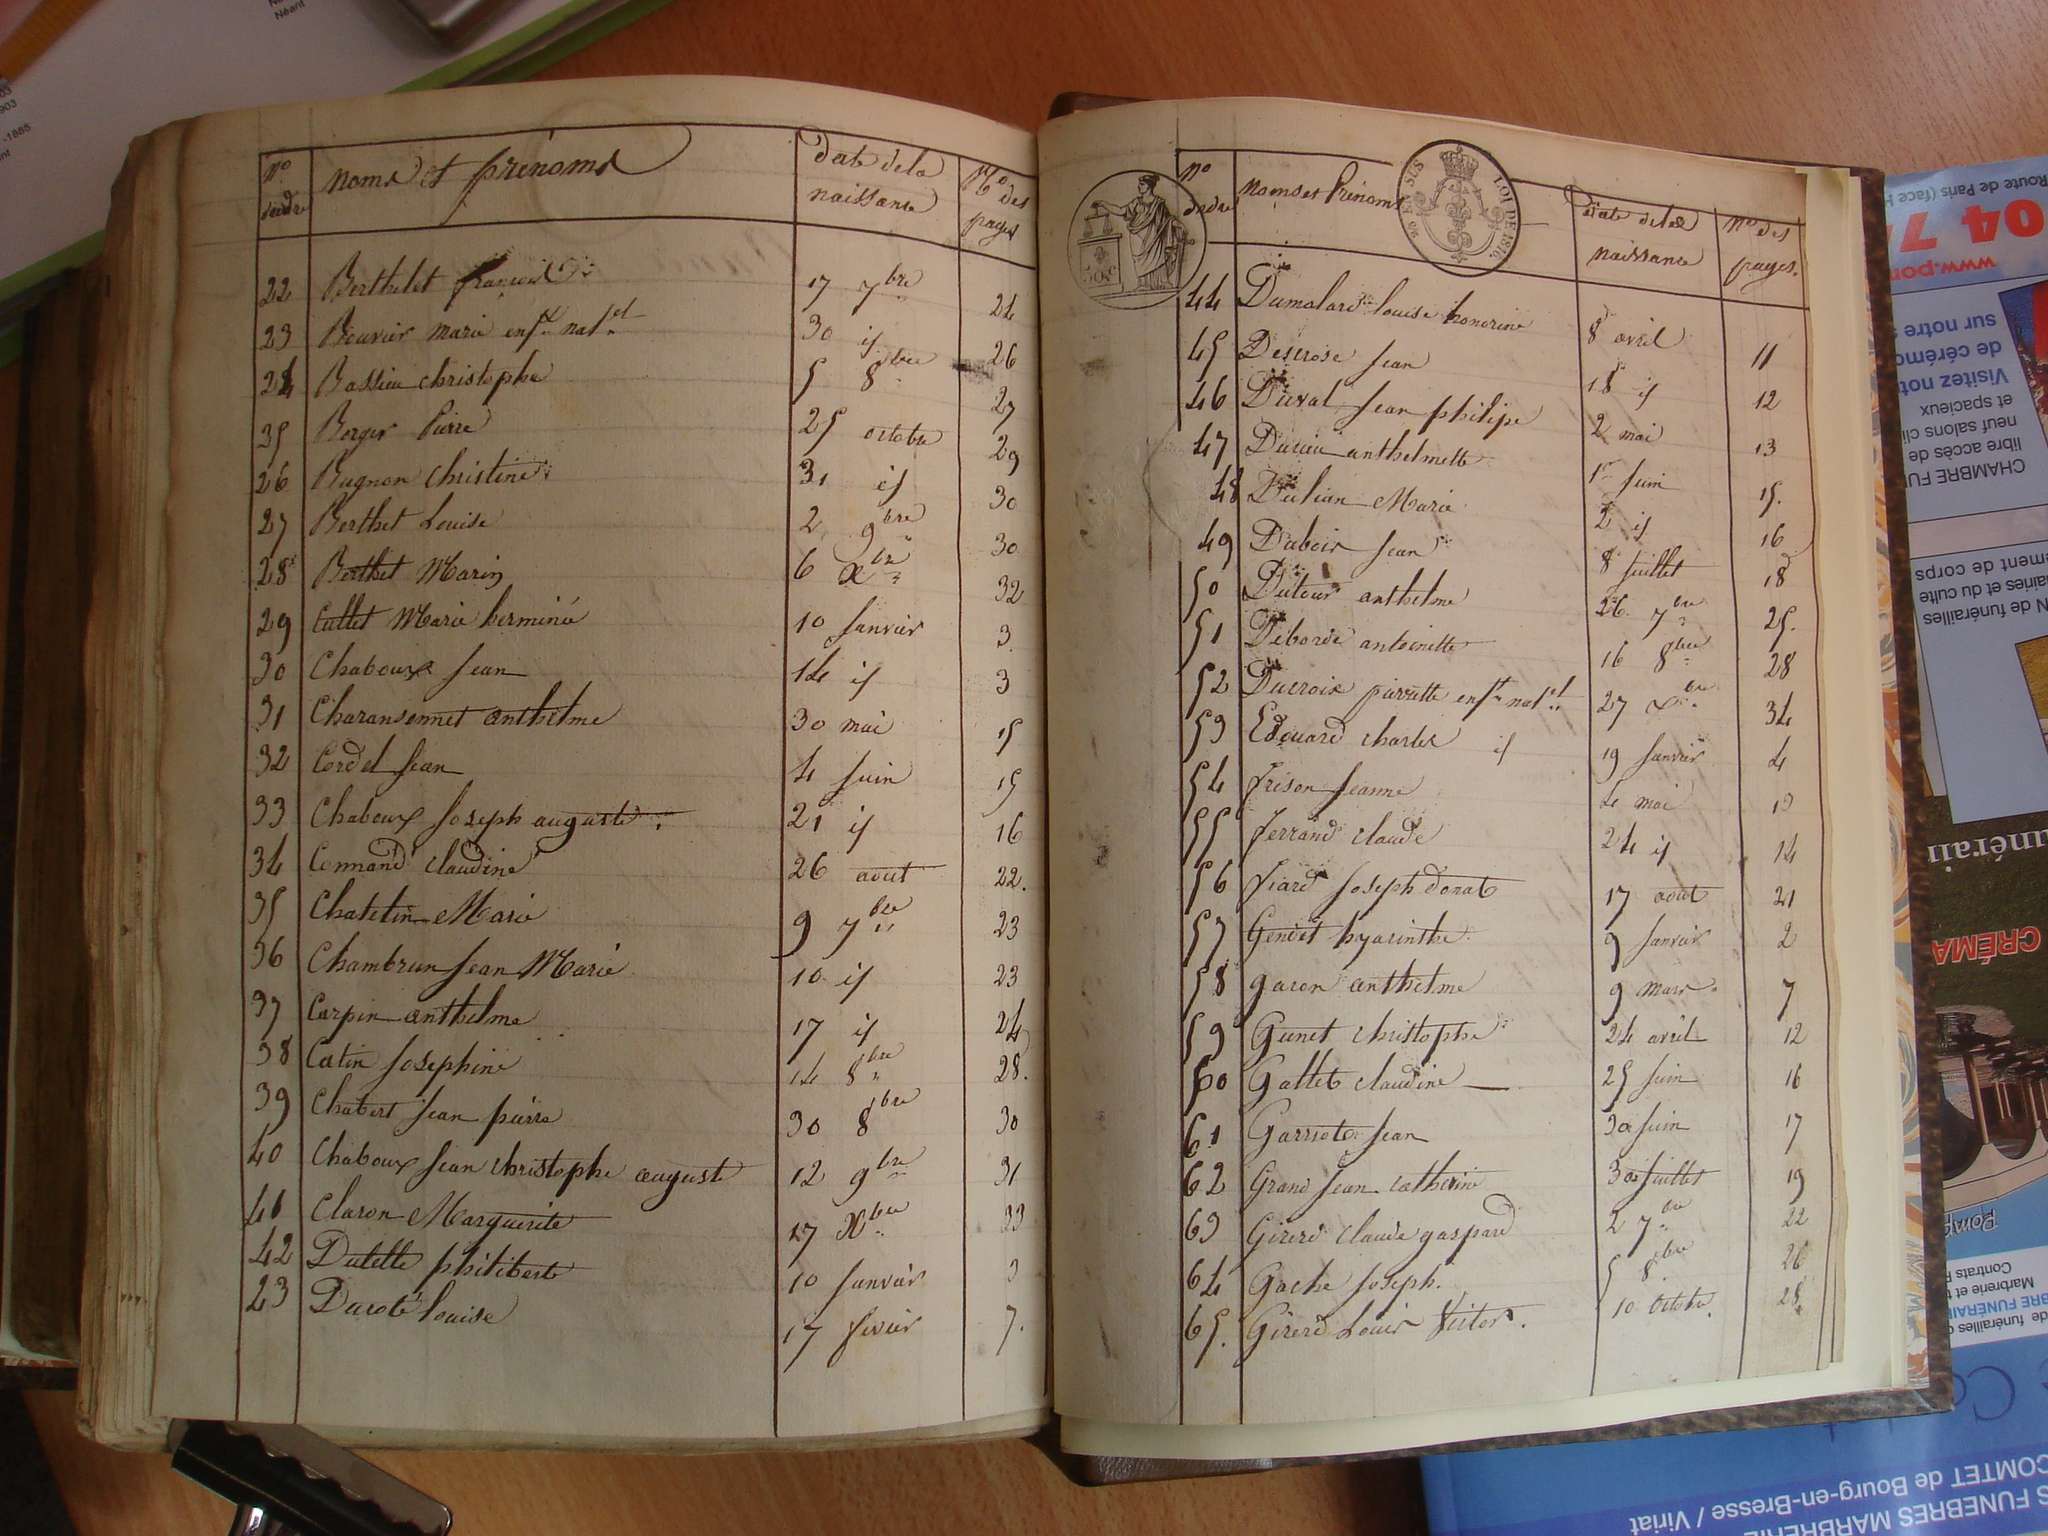 Néant
1903
-1885
No dordre
noms et prénoms
date de la naissance
No des pages
22 Berthelet françois 17 7bre 24
23 Bouvier marie enft natel 30 if 26
24 Bassieu christophe 5 8bre 27
25 Berger Pierre 25 octobre 29
26 Bugnon Christine 31 if 30
27 Berthet Louise 2 9bre 30
28 Berthet Marin 6 Xbre 32
29 Cullet Marie herminie 10 Janvier 3
30 Chaboux Jean 14 if 3
31 Charansonnet anthelme 30 mai 15
32 Cordel Jean 4 Juin 15
33 Chaboux Joseph auguste 21 if 16
34 Connand claudine 26 aout 22.
35 Chatelin Marie 9 7bre 23
36 Chambrun Jean Marie 10 if 23
37 Carpin anthelme 17 if 24
38 Catin Josephine 14 8bre 28.
39 Chabert Jean pierre 30 8bre 30
40 Chaboux Jean christophe auguste 12 9bre 31
41 Claron Marguerite 17 Xbre 33
42 Dutelle philiberte 10 Janvier 3
23 Ducoté louise 17 fevrier 7.
No dordre
Noms et Prénoms
Date de la naissance
No des pages.
EN SUS LOI DE 1816
44 Dumolard louise honorine 8 avril 11
45 Descrose Jean 18 if 12
46 Duval Jean philipe 2 mai 13
47 Ducieu anthelmette 1er Juin 15.
48 Dulian Marie 2 if 16
49 Dubois Jean 8 Juillet 18
50 Dutour anthelme 26 7bre 25.
51 Deborde antoinette 16 8bre 28
52 Ducroix pierrette enft natel 27 Xbre 34
53 Edouard charles if 19 Janvier 4
54 frison Jeanne 4 mai 13
55 ferrand claude 24 if 14
56 fiard Joseph donat 17 aout 21
57 Gendet hyacinthe 9 Janvier 2
58 garon anthelme 9 mars 7
59 Gunet christophe 24 avril 12
60 Gallet claudine 25 Juin 16
61 Garriot Jean 30 Juin 17
62 Grand Jean catherine 30 Juillet 19
63 Girerd claude gaspard 2 7bre 22
64 Gache Joseph. 5 8bre 26
65. Girerd Louis Victor. 10 Octobre. 28
Route de Paris (face
04 7
www.pom
sur notre s
de cérémo
Visitez not
et spacieux
neuf salons cli
libre accès de
CHAMBRE FU
ment de corps
naires et du culte
N de funérailles
unérail
CRÉMA
Pomp
Contrats
Marbrerie et t
BRE FUNÉRAI
de funérailles
S FUNEBRES MARBRERIE
COMTET de Bourg-en-Bresse / Viriat